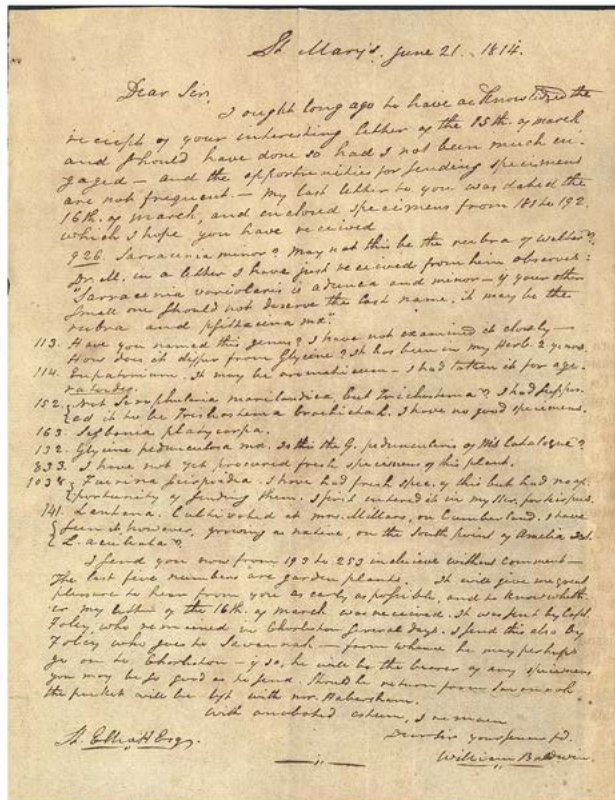 St. Mary's, June 21. 1814.
Dear Sir,
I ought long ago to have acknowledged the
receipt of your interesting letter of the 15th. of march
and should have done so had I not been much en-
gaged — and the opportunities for sending specimens
are not frequent. — My last letter to you was dated the
16th. of march, and enclosed specimens from 181 to 192.
which I hope you have received
926. Sarracenia minor? May not this be the rubra of Walter?
Dr. M. in a letter I have just received from him observes:
"Sarracenia variolaris is adunca and minor — if your other
small one should not deserve the last name, it may be the
rubra and psittacina mx."
113. Have you named this genus? I have not examined it closely —
How does it differ from Glycine? It has been in my Herb. 2 years.
114. Eupatorium. It may be aromaticum — I had taken it for age-
ratoides.
152. Not Scrophularia marilandica, but Trichostema? I had suppos-
ed it to be Trichostema brachiatah. I have no good specimens.
163. Sesbania platycarpa.
132. Glycine pedunculosa mx. Is this the G. peduncularis of Catalogue?
833. I have not yet procured fresh specimens of this plant.
1038. Fuirena scirpoidea. I have had fresh spec. of this but had no op-
portunity of sending them. I first entered it in my for
141. Lantana. Cultivated at mrs. Millers, on Cumberland. I have
seen it, however, growing as native, on the South point of Amelia Isl.
L. aculeata?
I send you now from 193 to 253 inclusive without comment —
The last five numbers are garden plants. It will give me great
pleasure to hear from you as early as possible, and to know wheth-
er my letter of the 16th. of march was received. It was sent by Capt.
Foley, who remained in Charleston several days. I send this also by
Foley who goes to Savannah — from whence he may perhaps
go on to Charleston — if so, he will be the bearer of any specimens
you may be so good as to send. Should he return from Savannah
the packet will be left with mr. Habersham.
With unabated esteem, I remain
Dear Sir your sincere fd.
St. Elliott Esq.
William Baldwin.